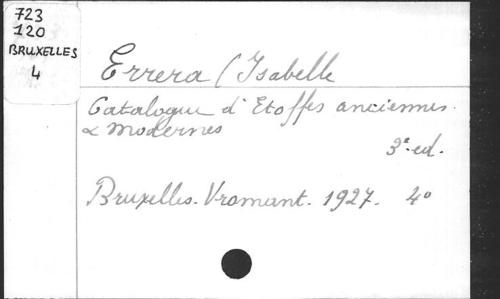 723
120
BRUXELLES
4
Errera (Isabelle
Catalogue d'Etoffes anciennes
& modernes
3e. ed.
Bruxelles. Vromant. 1927. 4o